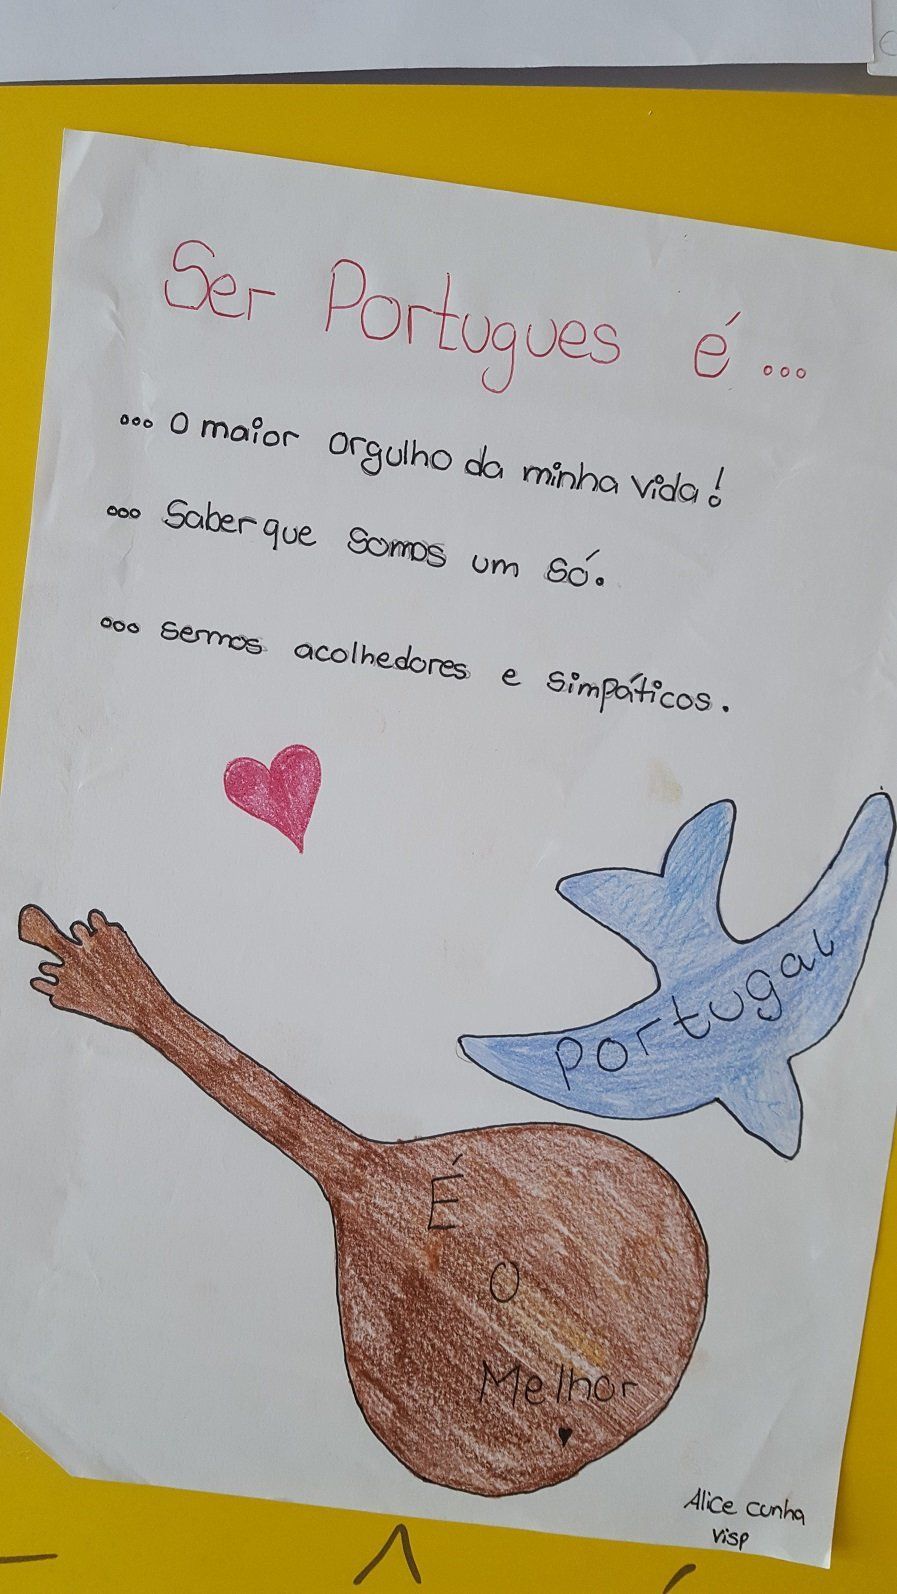 Ser Portugues é...
... o maior orgulho da minha vida!
... Saber que somos um só.
... sermos acolhedores e simpáticos.
Portugal
É
O
Melhor
Alice cunha
Visp